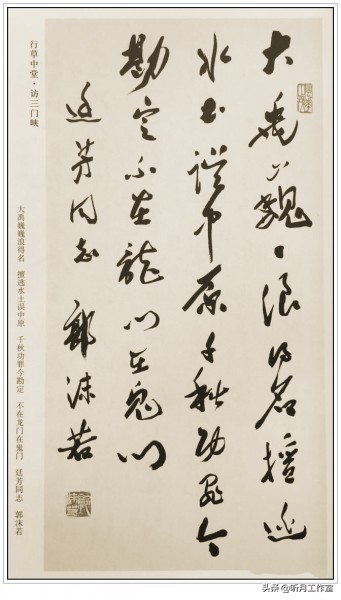 大禹巍〻浪得名擅逃
水土误中原千秋功罪今
勘定不在龍门在鬼门
廷芳同志 郭沫若
行草中堂·访三门峡
大禹巍巍浪得名 擅逃水土误中原 千秋功罪今勘定 不在龙门在鬼门 廷芳同志 郭沫若
头条 @听月工作室